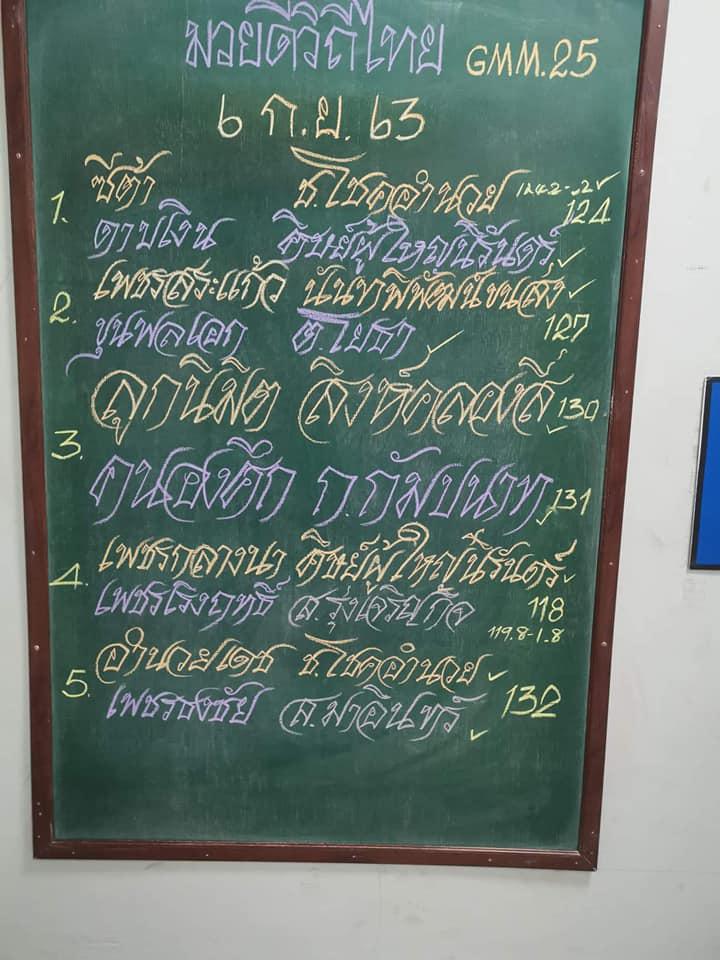 มวยดีวิถีไทย GMM.25
6 ก.ย. 63
1. ซีต้า ช.โชคอำนวย 124
ดาบเงิน ศิษย์ผู้ใหญ่นิรันดร์ ✓
2. เพชรสระแก้ว นันทพิพัฒน์ขนส่ง ✓
ขุนพลเอก ต.โยธา ✓ 127
3. ลูกนิมิต สิงห์คลองสี่ 130 ✓
คนองศึก ก.กัมปนาท 131 ✓
4. เพชรกลางนา ศิษย์ผู้ใหญ่นิรันดร์ ✓
เพชรโรงฤทธิ์ ส.รุ่งเจริญกิจ 118
119.8-1.8
5. อำนวยเดช ช.โชคอำนวย ✓
เพชรธงชัย ส.มาอินทร์ ✓ 132